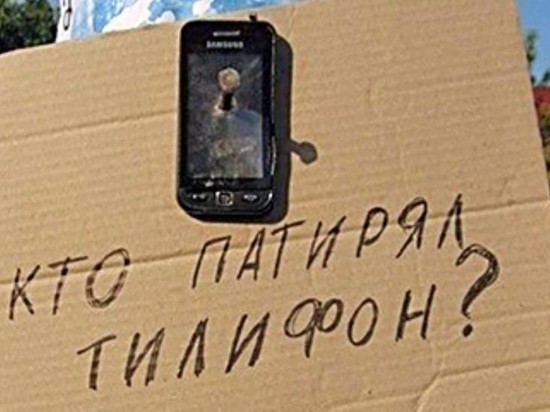 SAMSUNG
КТО ПАТИРЯЛ
ТИЛИФОН?